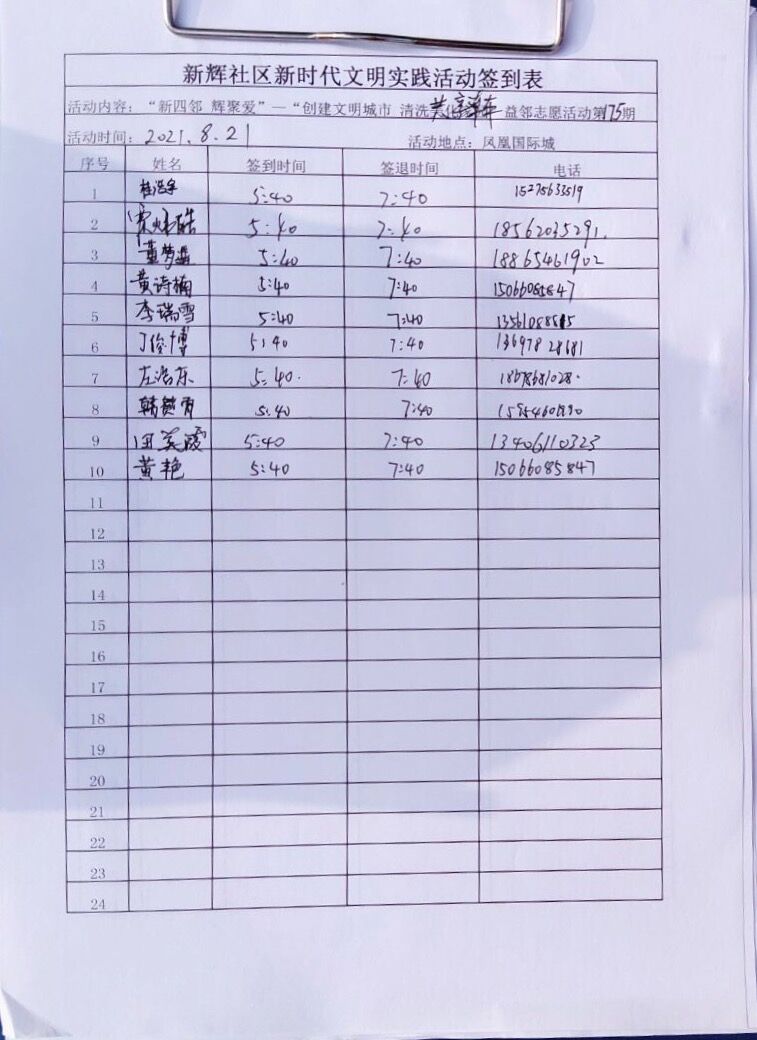 新辉社区新时代文明实践活动签到表
活动内容：“新四邻 辉聚爱”—“创建文明城市 清洗共享单车 益邻志愿活动第175期
活动时间：2021.8.21 活动地点：凤凰国际城
序号 姓名 签到时间 签退时间 电话
1 5:40 7:40 15275633519
2 5:40 7:40 18562035291
3 董梦 5:40 7:40 18865461902
4 黄诗楠 5:40 7:40 15066085847
5 李瑞雪 5:40 7:40
6 丁俊博 5:40 7:40 13697828681
7 左浩东 5:40 7:40
8 韩 5:40 7:40
9 田英霞 5:40 7:40 13406110323
10 黄艳 5:40 7:40 15066085847
11
12
13
14
15
16
17
18
19
20
21
22
23
24